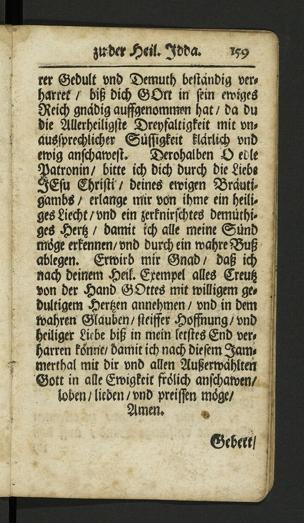 zu der Heil. Idda. 159
rer Gedult vnd Demuth beständig ver-
harret / biß dich GOtt in sein ewiges
Reich gnädig auffgenommen hat / da du
die Allerheiligste Dreyfaltigkeit mit vn-
aussprechlicher Süssigkeit klärlich vnd
ewig anschawest. Derohalben O edle
Patronin / bitte ich dich durch die Liebe
JEsu Christi / deines ewigen Bräuti-
gambs / erlange mir von ihme ein heili-
ges Liecht / vnd ein zerknirschtes demüthi-
ges Hertz / damit ich alle meine Sünd
möge erkennen / vnd durch ein wahre Buß
ablegen. Erwird mir Gnad / daß ich
nach deinem Heil. Exempel alles Creutz
von der Hand GOttes mit willigem ge-
dultigem Hertzen annehmen / vnd in dem
wahren Glauben / steiffer Hoffnung / vnd
heiliger Liebe biß in mein letstes End ver-
harren könne / damit ich nach diesem Jam-
merthal mit dir vnd allen Außerwählten
Gott in alle Ewigkeit frölich anschawen /
loben / lieben / vnd preissen möge /
Amen.
Gebett /